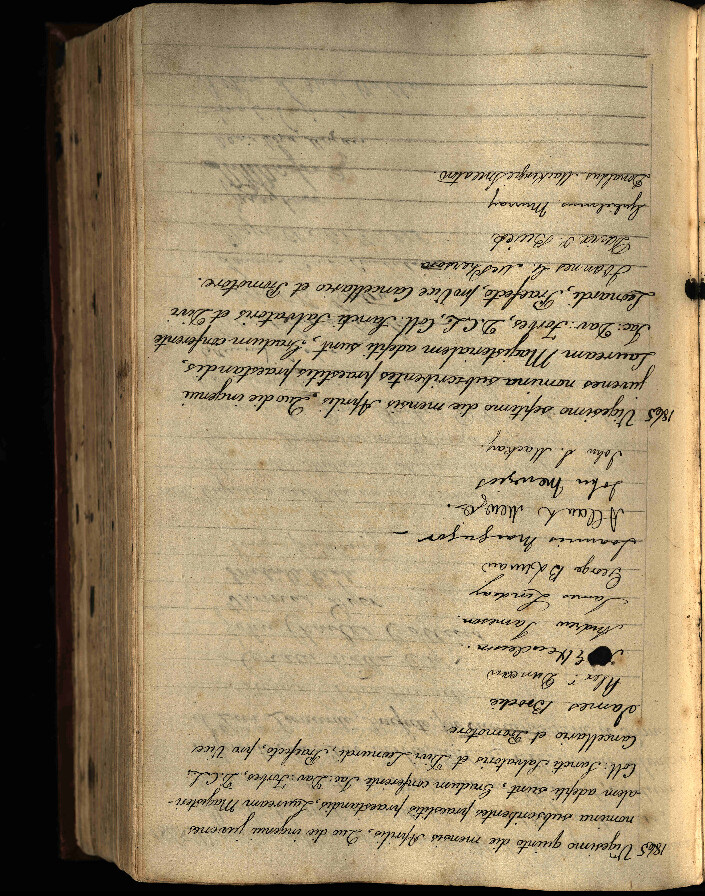 1865 Vigesimo quinto die mensis Aprilis, Quo die ingenui juvenes
nomina subscribentes praestitis praestandis, Lauream Magister-
alem adepti sunt, Gradum conferente Jac: Dav: Forbes, D.C.L.
Coll: Sancti Salvatoris et Divi Leonardi, Praefecto, pro Vice
Cancellario et Promotore
James Brodie
Alexr Duncan
Henderson
Andrew Jameson
James Lindsay
George B.
Joannes Macgregor
Allan
John Menzies
John S. Mackay
1865 Vigesimo septimo die mensis Aprilis Quo die ingenui
juvenes nomina subscribentes praestitis praestandis,
Lauream Magisteralem adepti sunt, Gradum conferente
Jac: Dav: Forbes, D.C.L. Coll: Sancti Salvatoris et Divi
Leonardi, Praefecto, pro Vice Cancellario et Promotore.
Joannes G. McPherson
David
Gulielmus Murray
Donaldus Mackenzie